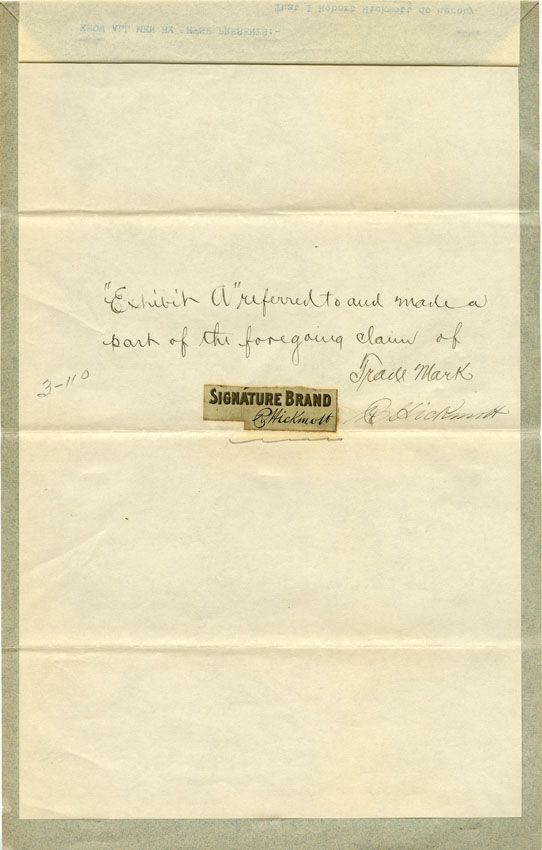 That I Robert Hickmott do hereby
KNOW ALL MEN BY THESE PRESENTS:-
"Exhibit A" referred to and made a
part of the foregoing claim of
Trade Mark
3-110
SIGNATURE BRAND
R Hickmott
R Hickmott